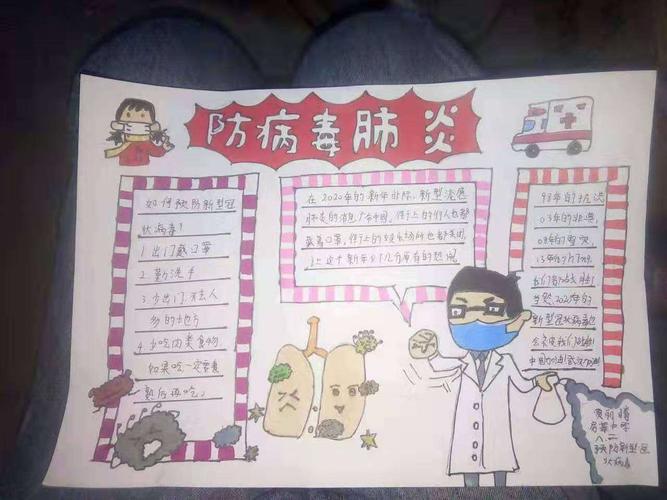 防病毒肺炎
如何预防新型冠
状病毒？
1 出门戴口罩
2 勤洗手
3 少出门 不去人
多的地方
4 少吃肉类食物
如果吃一定要煮
熟后再吃。
在2020年的新年
新型
肺炎的消息
中国
街上的行人也都
戴着口罩
街上的娱乐场所也都关闭
让这个新年少了几分原有的热闹
98年的洪涝
03年的非典
08年的雪灾
13年的
我们都战胜
2020年的
新型冠状病毒也
会被我们战胜
中国加油武汉加油
八.二
预防新型冠
状病毒